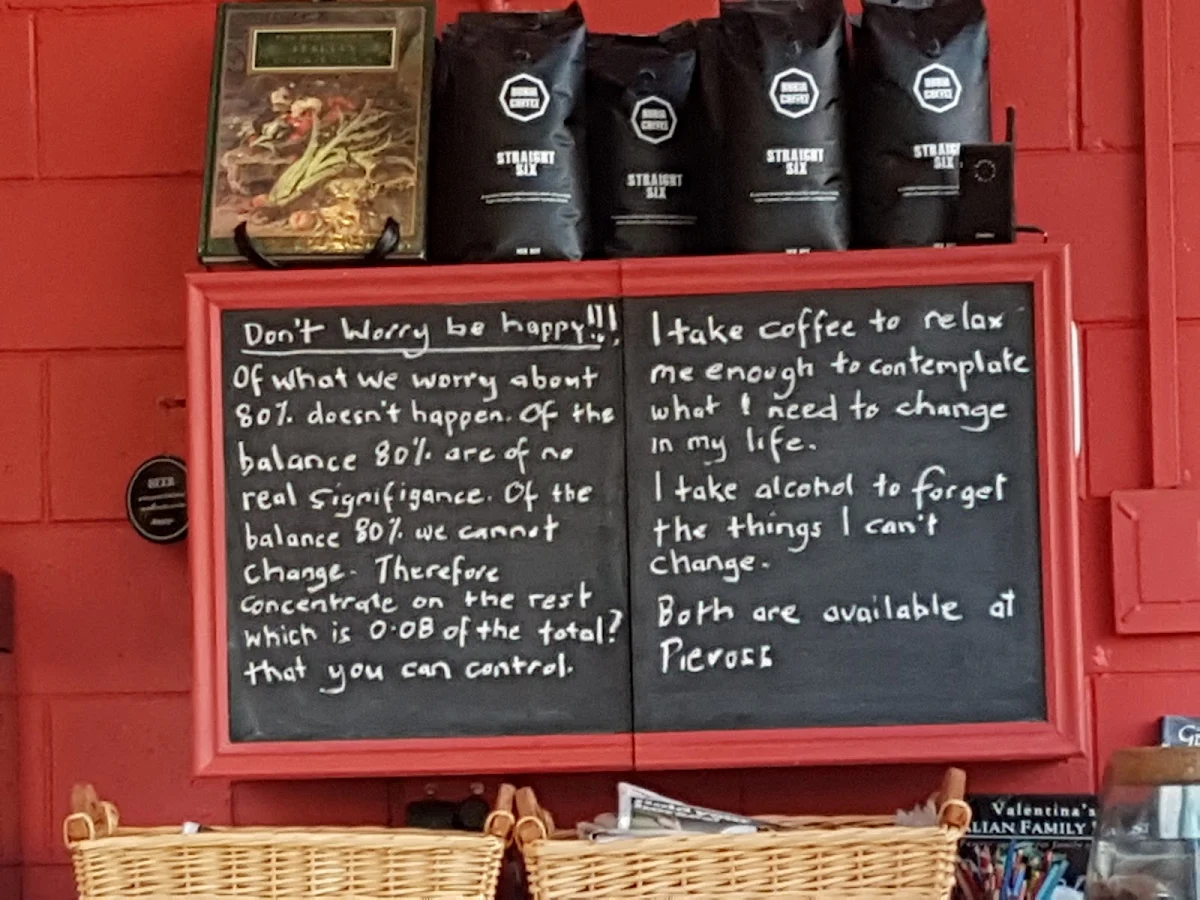 ITALIAN
COFFEE
STRAIGHT
SIX
COFFEE
STRAIGHT
SIX
COFFEE
STRAIGHT
SIX
COFFEE
STRAIGHT
SIX
Don't Worry be happy!!!
Of what we worry about
80% doesn't happen. Of the
balance 80% are of no
real signifigance. Of the
balance 80% we cannot
change. Therefore
concentrate on the rest
which is 0.08 of the total?
that you can control.
I take coffee to relax
me enough to contemplate
what I need to change
in my life.
I take alcohol to forget
the things I can't
change.
Both are available at
BEER
Valentina's
ALIAN FAMILY